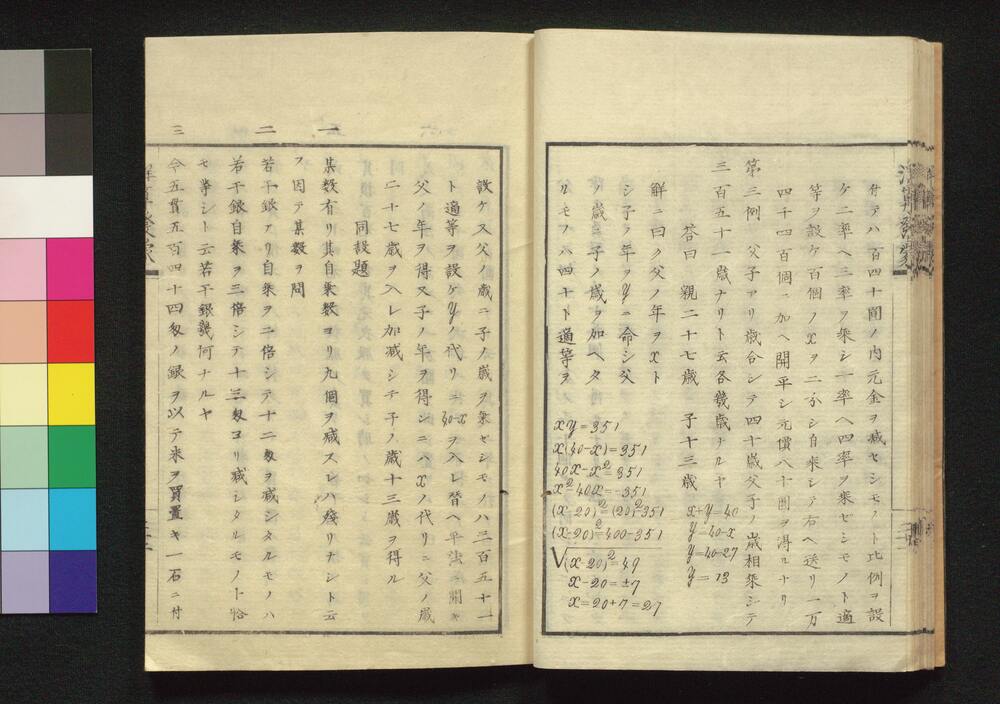 付テハ百四十間ノ内元金ヲ减セシモノト比例ヲ設
ケ二率ヘ三率ヲ乗シ一率ヘ四率ヲ乗ゼシモノト適
等ヲ設ケ百個ノxヲ二分シ自乗シテ右ヘ送リ一万
四千四百個ニ加ヘ開平シ元價八十圓ヲ得ルナリ
第三例 父子アリ歳合シテ四十歳父子ノ歳相乗シテ
三百五十一歳ナリト云各幾歳ナルヤ
答曰 親二十七歳 子十三歳
解ニ曰ク父ノ年ヲxト
シ子ノ年ヲyニ命シ父
ノ歳ニ子ノ歳ヲ加ヘタ
ルモノハ四十ト適等ヲ
x+y=40
y=40-x
y=40-27
y=13
xy=351
x(40-x)=351
40x-x²=351
x²-40x=-351
(x-20)²=(20)²351
(x-20)²=400-351
√(x-20)²=49
x-20=±7
x=20+7=27
設ケ又父ノ歳ニ子ノ歳ヲ乗ゼシモノハ三百五十一
ト適等ヲ設ケyノ代リニ40-xヲ入レ替ヘ平法ニ開キ
父ノ年ヲ得又子ノ年ヲ得ンニハxノ代リニ父ノ歳
二十七歳ヲ入レ加减シテ子ノ歳十三歳ヲ得ル
同設題
一
某数有リ其自乗数ヨリ九個ヲ减スレハ残リナシト云
フ因テ某数ヲ問
二
若干銀アリ自乗ヲ二倍シテ十二匁ヲ减シタルモノハ
若干銀自乗ヲ三倍シテ十三匁ヨリ减シタルモノト恰
モ等シト云若干銀幾何ナルヤ
三
今五貫五百四十四匁ノ銀ヲ以テ米ヲ買置キ一石ニ付